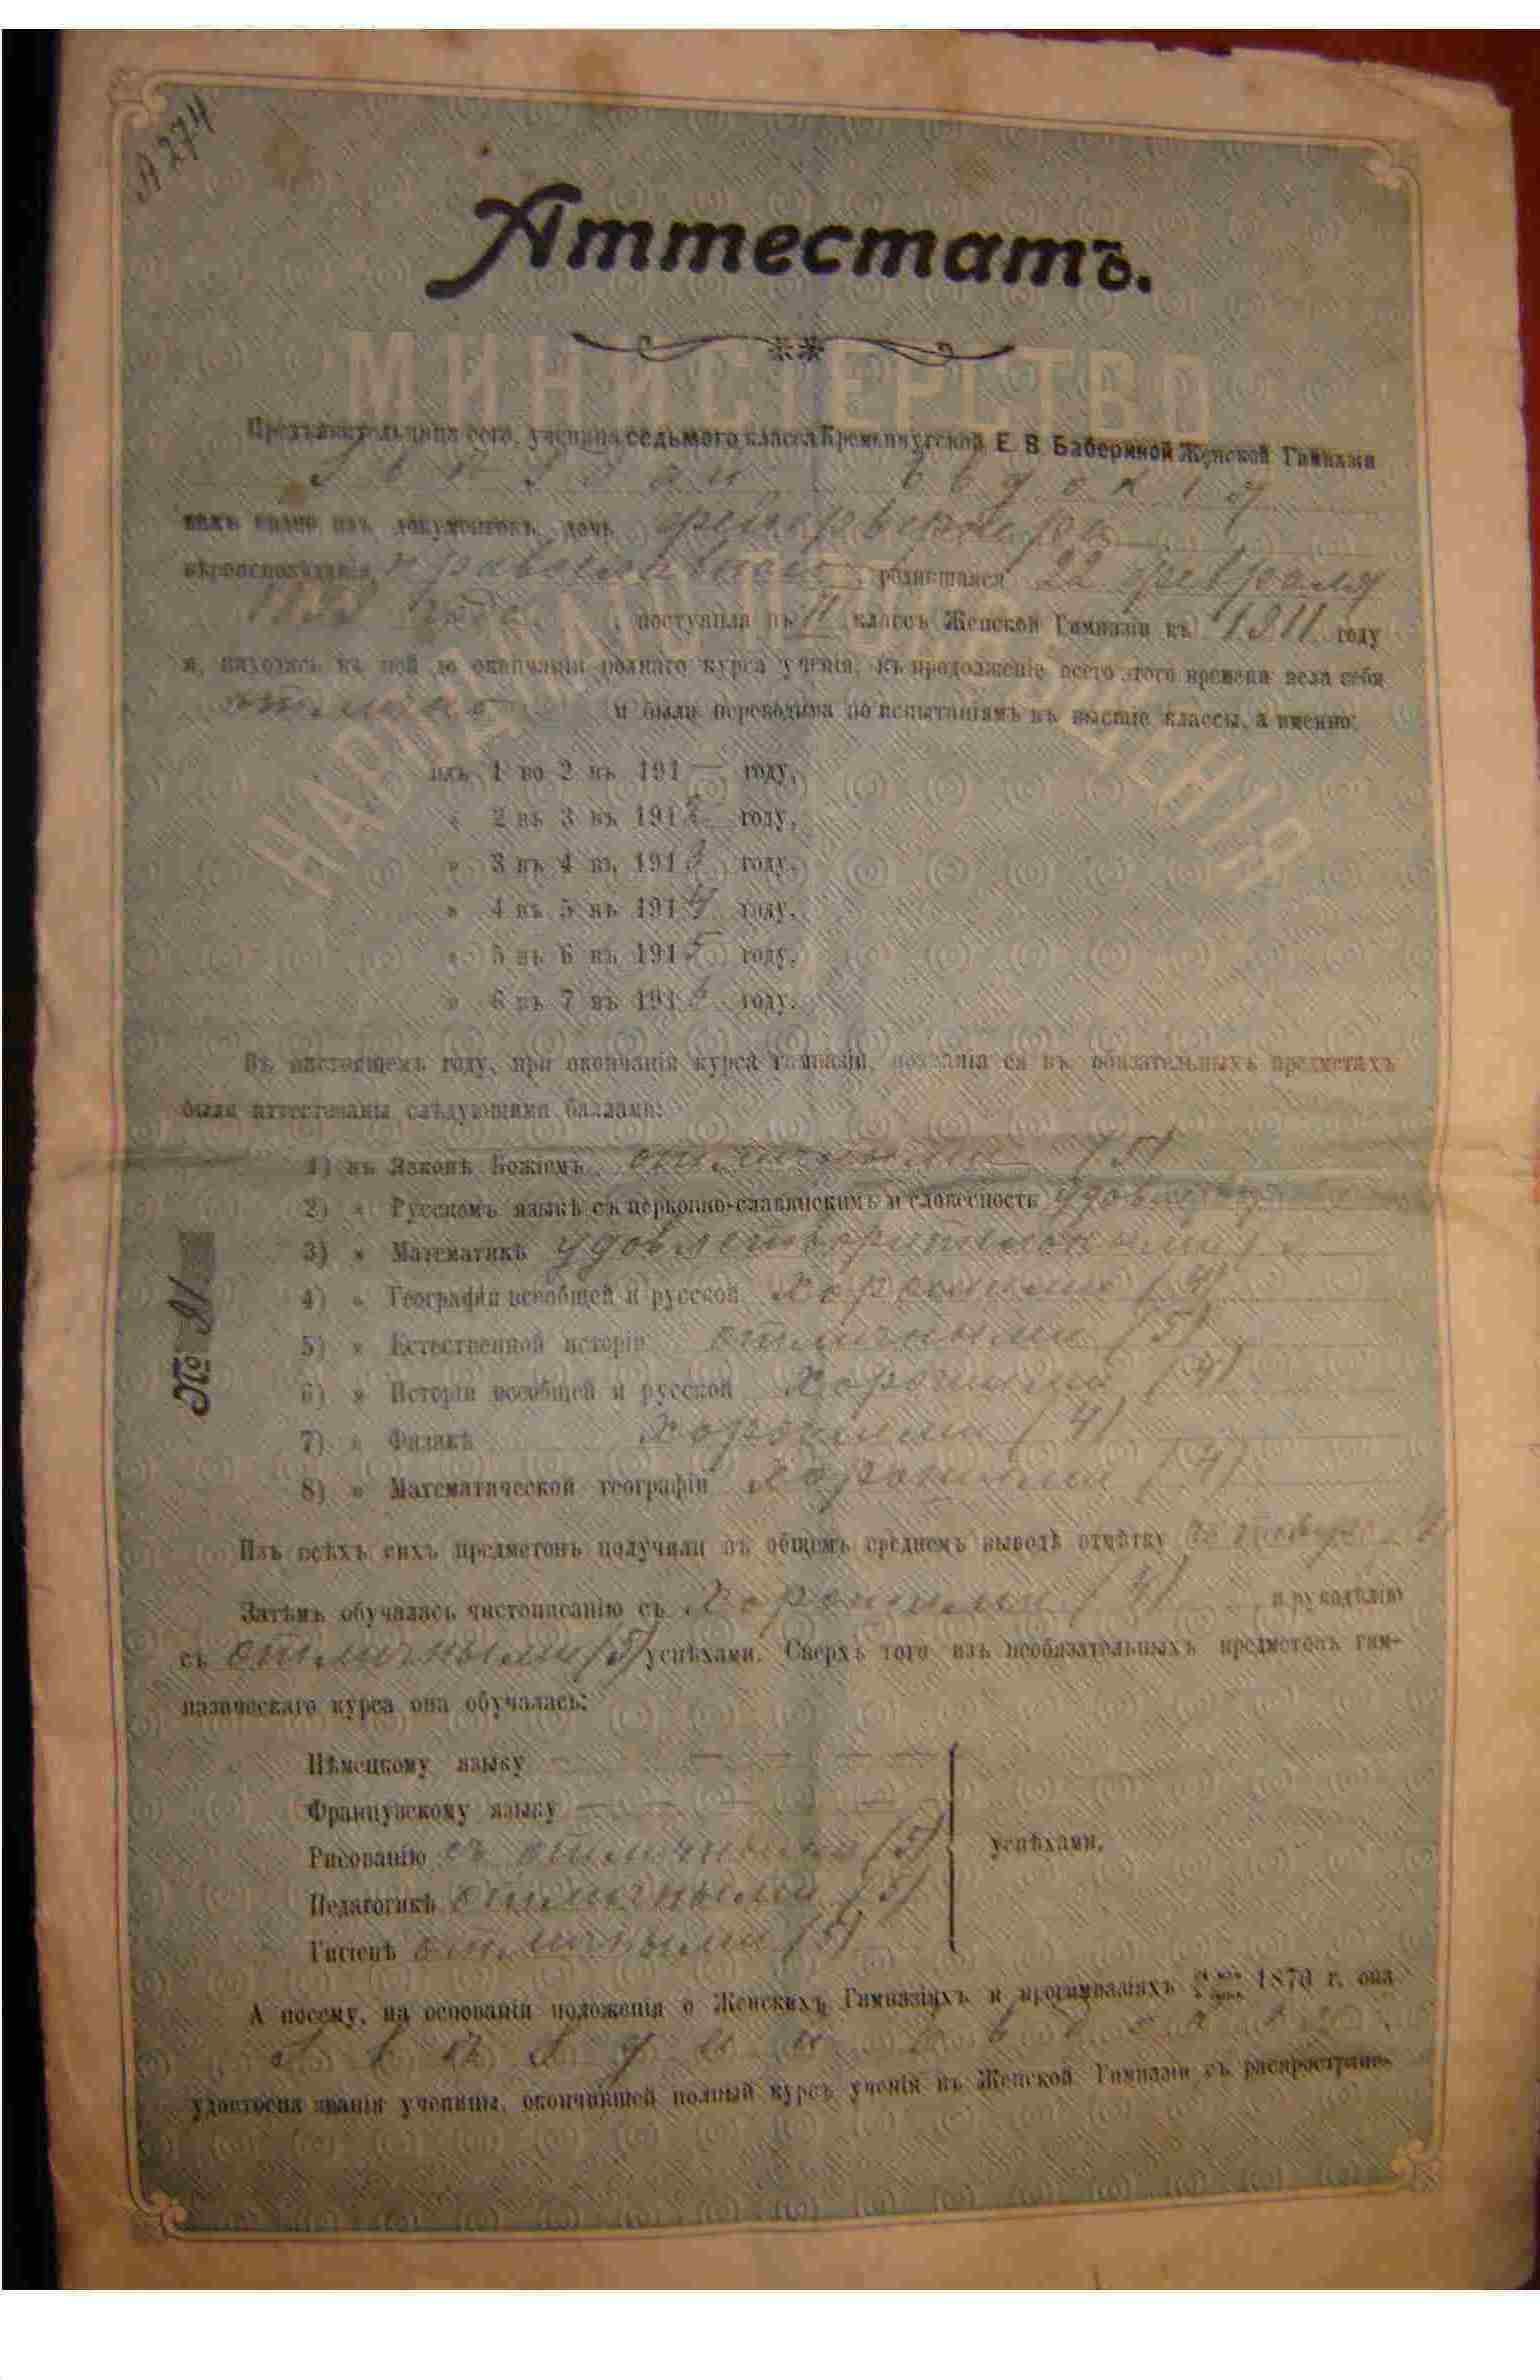 274
Аттестатъ.
МИНИСТЕРСТВО
НАРОДНАГО ПРОСВѢЩЕНІЯ
Предъявительница сего, ученица седьмого класса Кременчугской Е. В. Бабериной Женской Гимназіи
Евдокія
какъ видно изъ документовъ, дочь
вѣроисповѣданія православнаго, родившаяся 22 февраля
года, поступила въ II классъ Женской Гимназіи въ 1911 году
и, находясь въ ней до окончанія полнаго курса ученія, въ продолженіе всего этого времени вела себя
отлично и была переводима по испытаніямъ въ высшіе классы, а именно:
изъ 1 во 2 въ 191— году,
„ 2 въ 3 въ 1912 году,
„ 3 въ 4 въ 1913 году,
„ 4 въ 5 въ 1914 году,
„ 5 въ 6 въ 1915 году,
„ 6 въ 7 въ 1916 году.
Въ настоящемъ году, при окончаніи курса гимназіи, познанія ея въ обязательныхъ предметахъ
были аттестованы слѣдующими баллами:
1) въ Законѣ Божіемъ отличными (5)
2) „ Русскомъ языкѣ съ церковно-славянскимъ и словесность
3) „ Математикѣ удовлетворительными
4) „ Географіи всеобщей и русской хорошими (4)
5) „ Естественной исторіи отличными (5)
6) „ Исторіи всеобщей и русской хорошими (4)
7) „ Физикѣ хорошими (4)
8) „ Математической географіи хорошими (4)
Изъ всѣхъ сихъ предметовъ получила въ общемъ среднемъ выводѣ отмѣтку
Затѣмъ обучалась чистописанію съ хорошими (4) и рукодѣлію
съ отличными (5) успѣхами. Сверхъ того изъ необязательныхъ предметовъ гим-
назическаго курса она обучалась:
Нѣмецкому языку — — — —
Французскому языку — — — —
Рисованію съ отличными (5)
успѣхами.
Педагогикѣ отличными (5)
Гигіенѣ отличными (5)
А посему, на основаніи положенія о Женскихъ Гимназіяхъ и прогимназіяхъ 1870 г. она
удостоена званія ученицы, окончившей полный курсъ ученія въ Женской Гимназіи съ распростране-
№